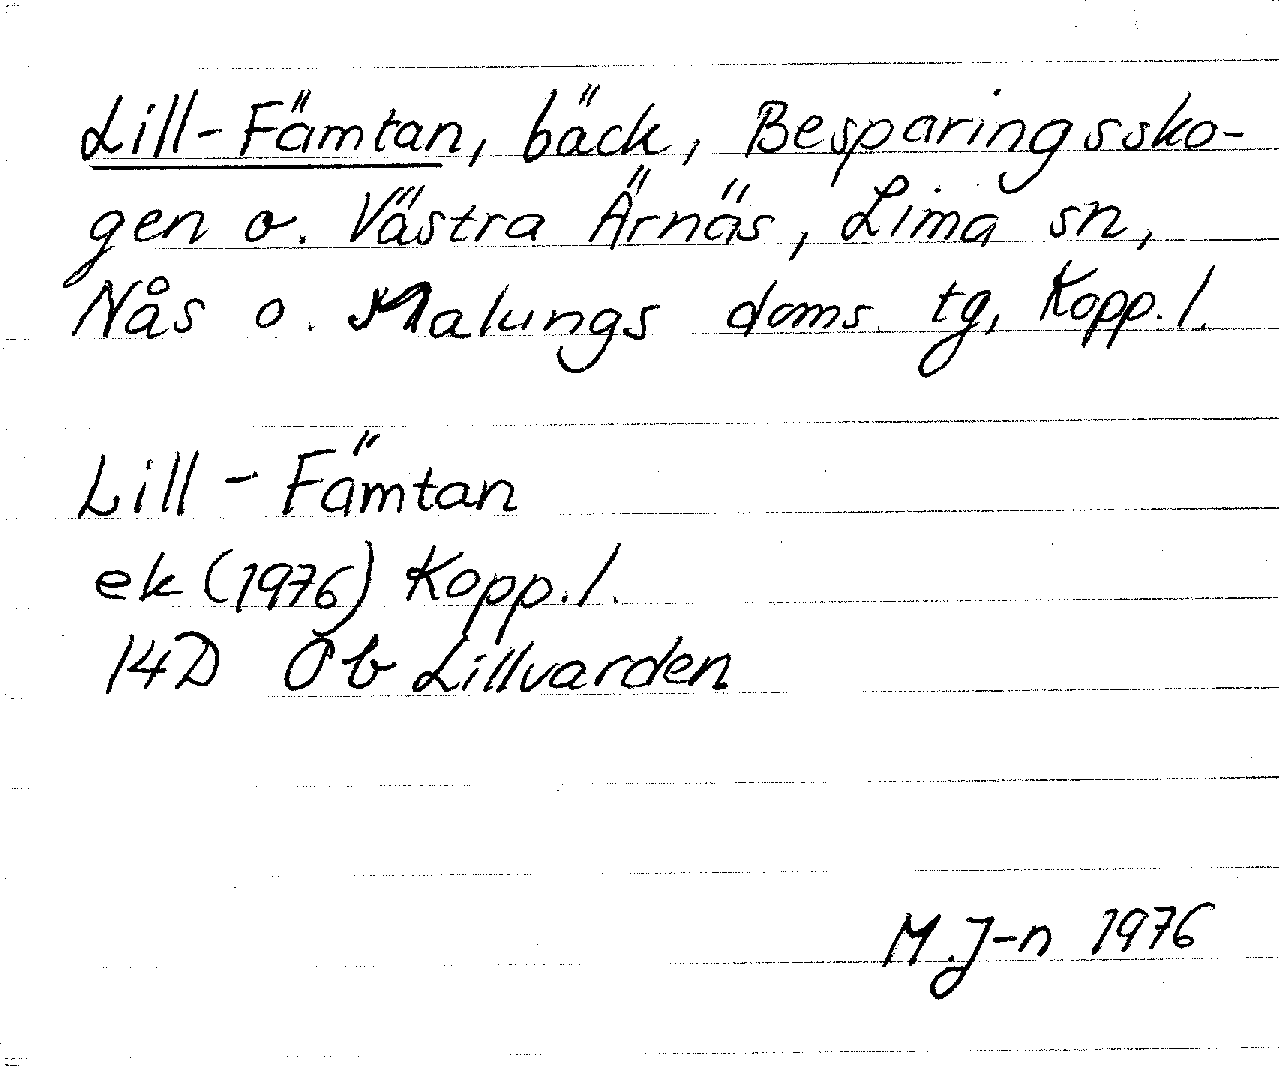 Lill-Fämtan, bäck, Besparingssko-
gen o. Västra Ärnäs, Lima sn,
Nås o. Malungs doms. tg, Kopp. l.
Lill-Fämtan
ek (1976) Kopp. l.
14D 0b Lillvarden
M.J-n 1976